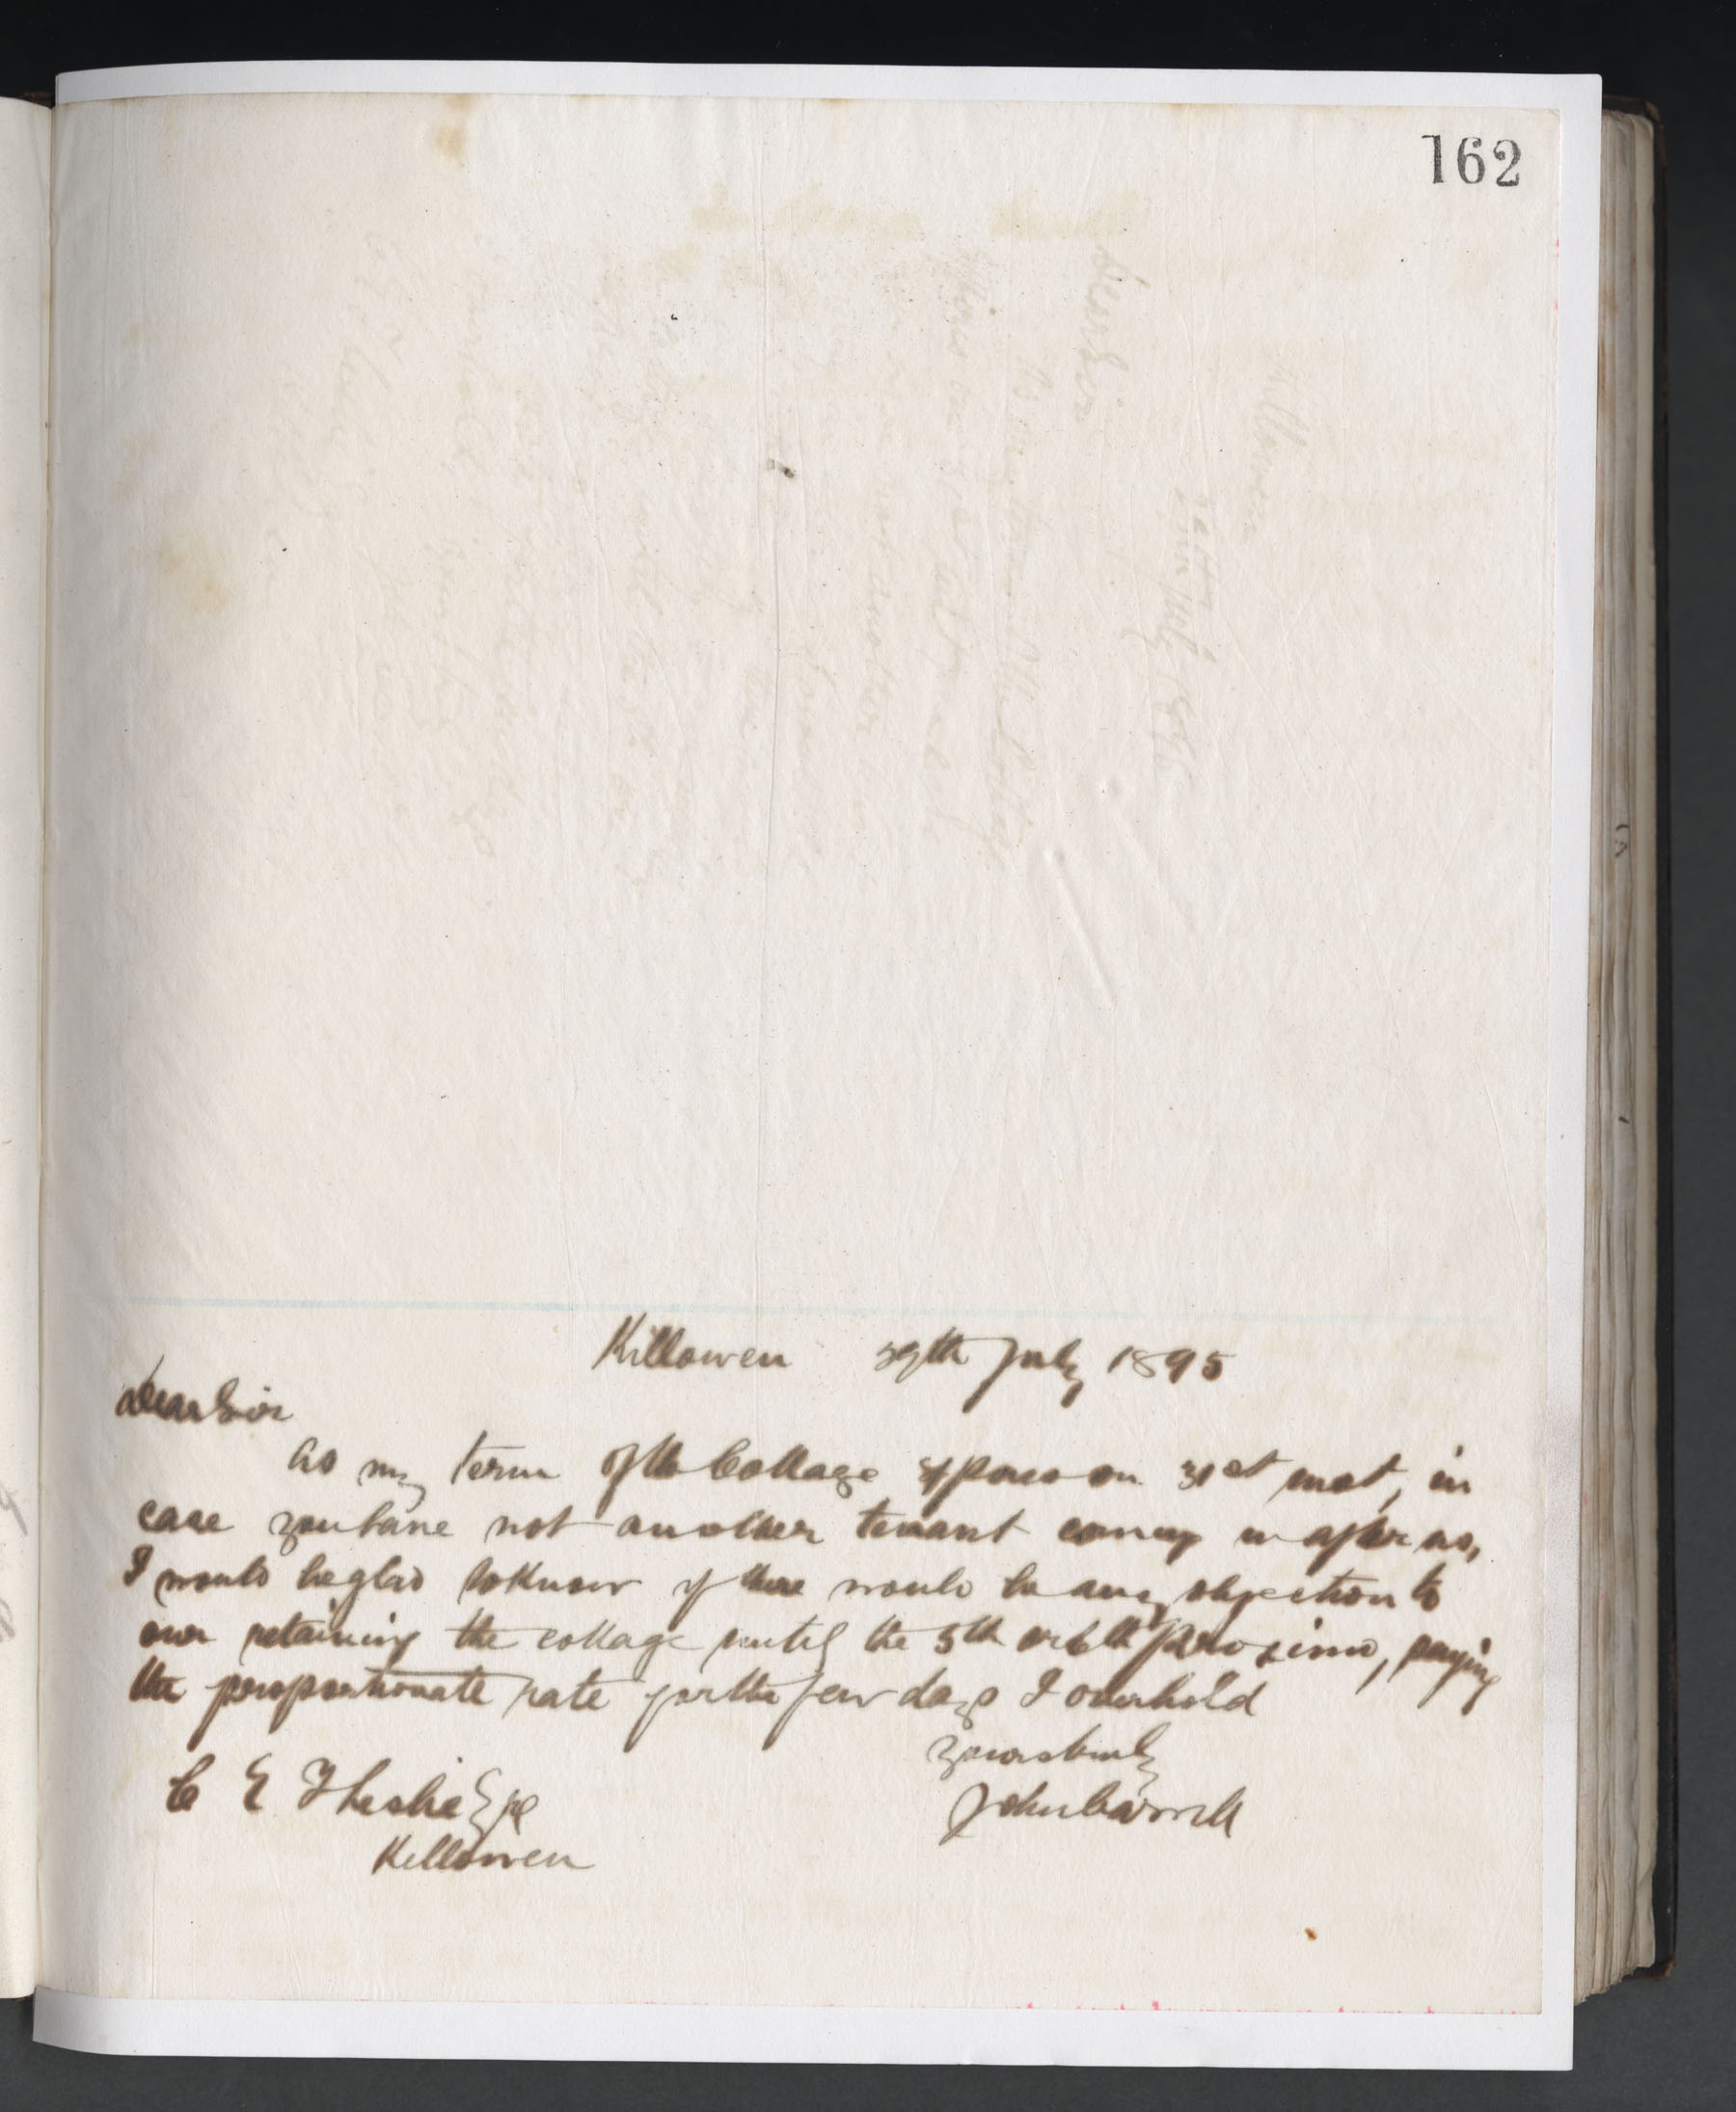 162
Killowen 29th July 1895
Dear Sir
As my term of the Cottage expires on 31st inst, in
case you have not another tenant coming in after us,
I would be glad to know if there would be any objection to
our retaining the cottage until the 5th or 6th proximo, paying
the proportionate rate for the few days I overhold
Yours truly
C E T Leslie Esqe
Killowen